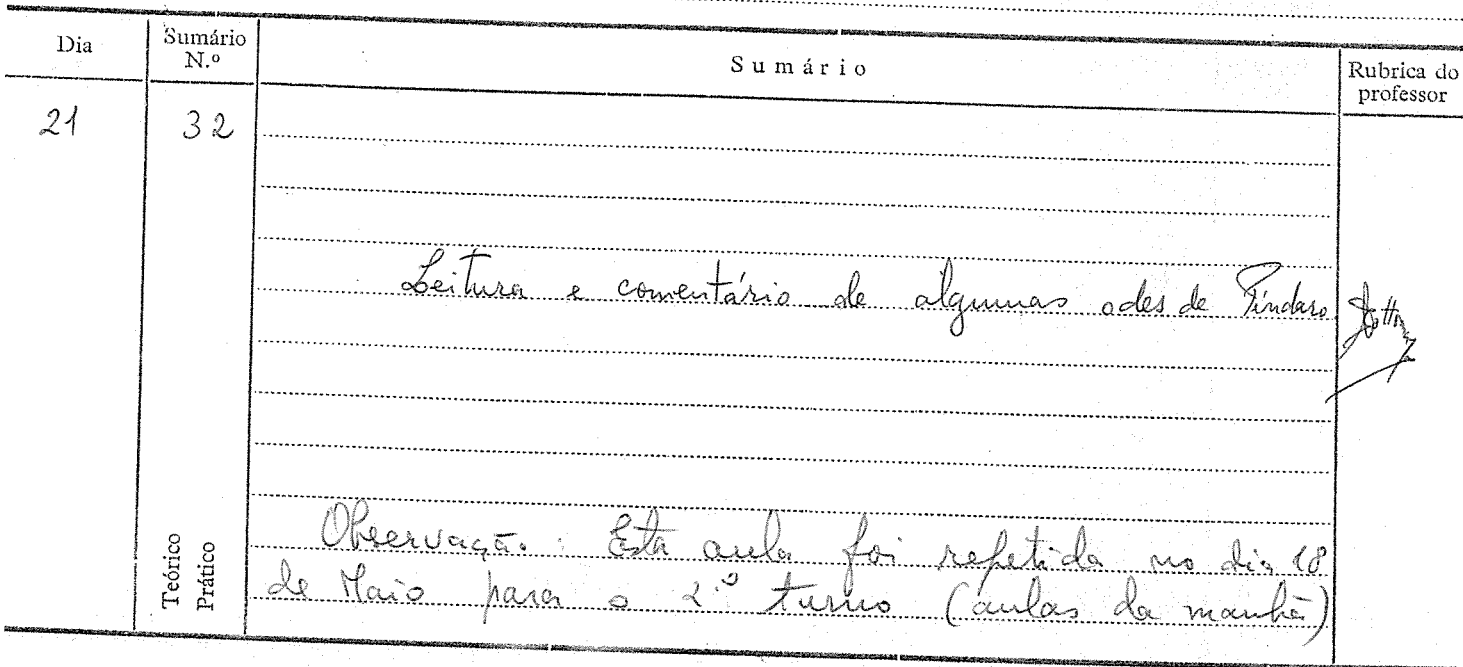 Dia
Sumário
N.º
Sumário
Rubrica do
professor
21
32
Leitura e comentário de algumas odes de Píndaro
Teórico
Prático
Observação: Esta aula foi repetida no dia 18
de Maio para o 2.º turno (aulas da manhã)